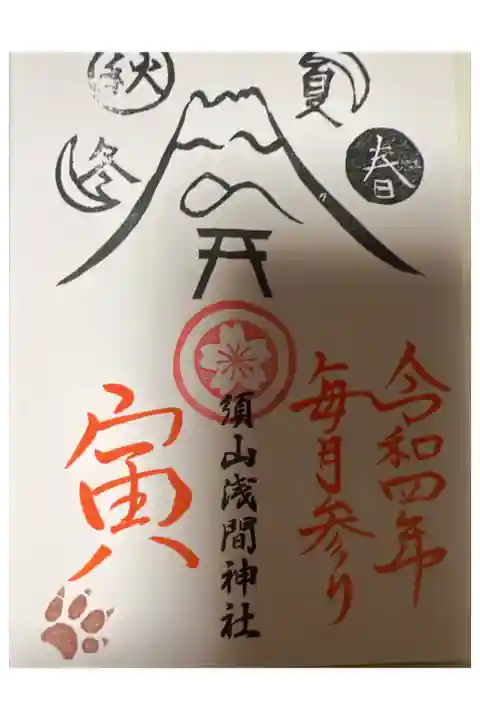 春
夏
秋
冬
令和四年
毎月参り
須山浅間神社
寅